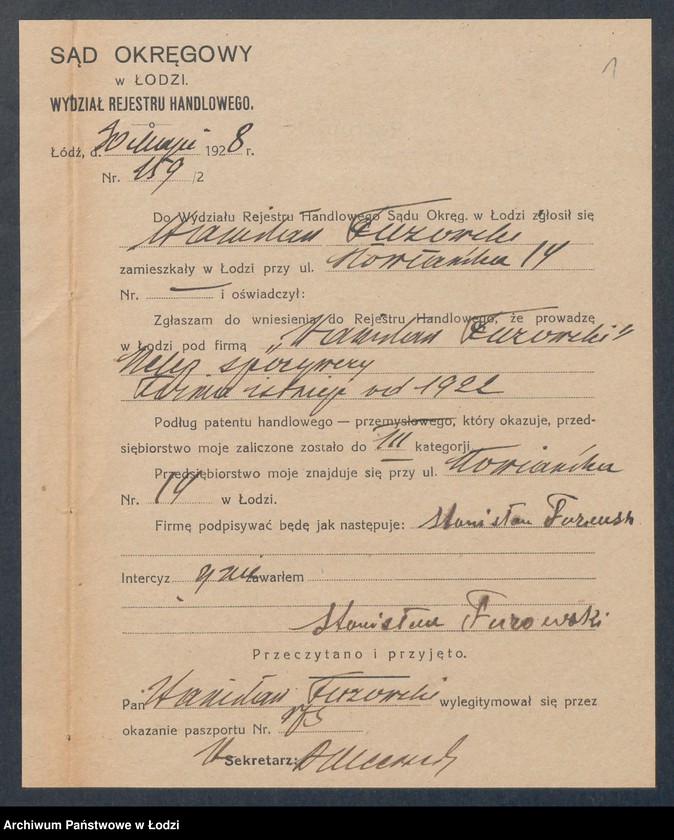 SĄD OKRĘGOWY
w ŁODZI.
WYDZIAŁ REJESTRU HANDLOWEGO.
1
Łódź, d. 30 Maja 1928 r.
Nr. 159/2
Do Wydziału Rejestru Handlowego Sądu Okręg. w Łodzi zgłosił się
Stanisław
zamieszkały w Łodzi przy ul. 14
Nr. — i oświadczył:
Zgłaszam do wniesienia do Rejestru Handlowego, że prowadzę
w Łodzi pod firmą „Stanisław
Sklep spożywczy
Firma istnieje od 1922
Podług patentu handlowego — przemysłowego, który okazuje, przed-
siębiorstwo moje zaliczone zostało do III kategorji
Przedsiębiorstwo moje znajduje się przy ul.
Nr. 14 w Łodzi.
Firmę podpisywać będę jak następuje: Stanisław
Intercyzy nie zawarłem
Stanisław
Przeczytano i przyjęto.
Pan Stanisław wylegitymował się przez
okazanie paszportu Nr.
Sekretarz:
Archiwum Państwowe w Łodzi